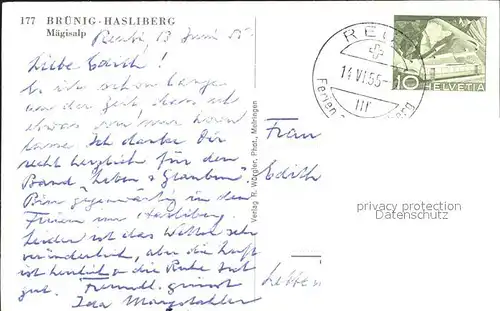 177 BRÜNIG-HASLIBERG
Mägisalp
Reuti 13 Juni 55.
Liebe Edith!
Es ist schon lange
an der Zeit, dass ich
etwas von mir hören
lasse. Ich danke Dir
recht herzlich für den
Band "Leben & Glauben".
Bin gegenwärtig in den
Ferien am Hasliberg.
Leider ist das Wetter sehr
veränderlich, aber die Luft
ist herrlich & die Ruhe tut
gut. Freundl. grüsst
Ida
Verlag R. Würgler, Phot., Meiringen
14.VI.55
III
Ferien
10 HELVETIA
Frau
Edith
privacy protection
Datenschutz